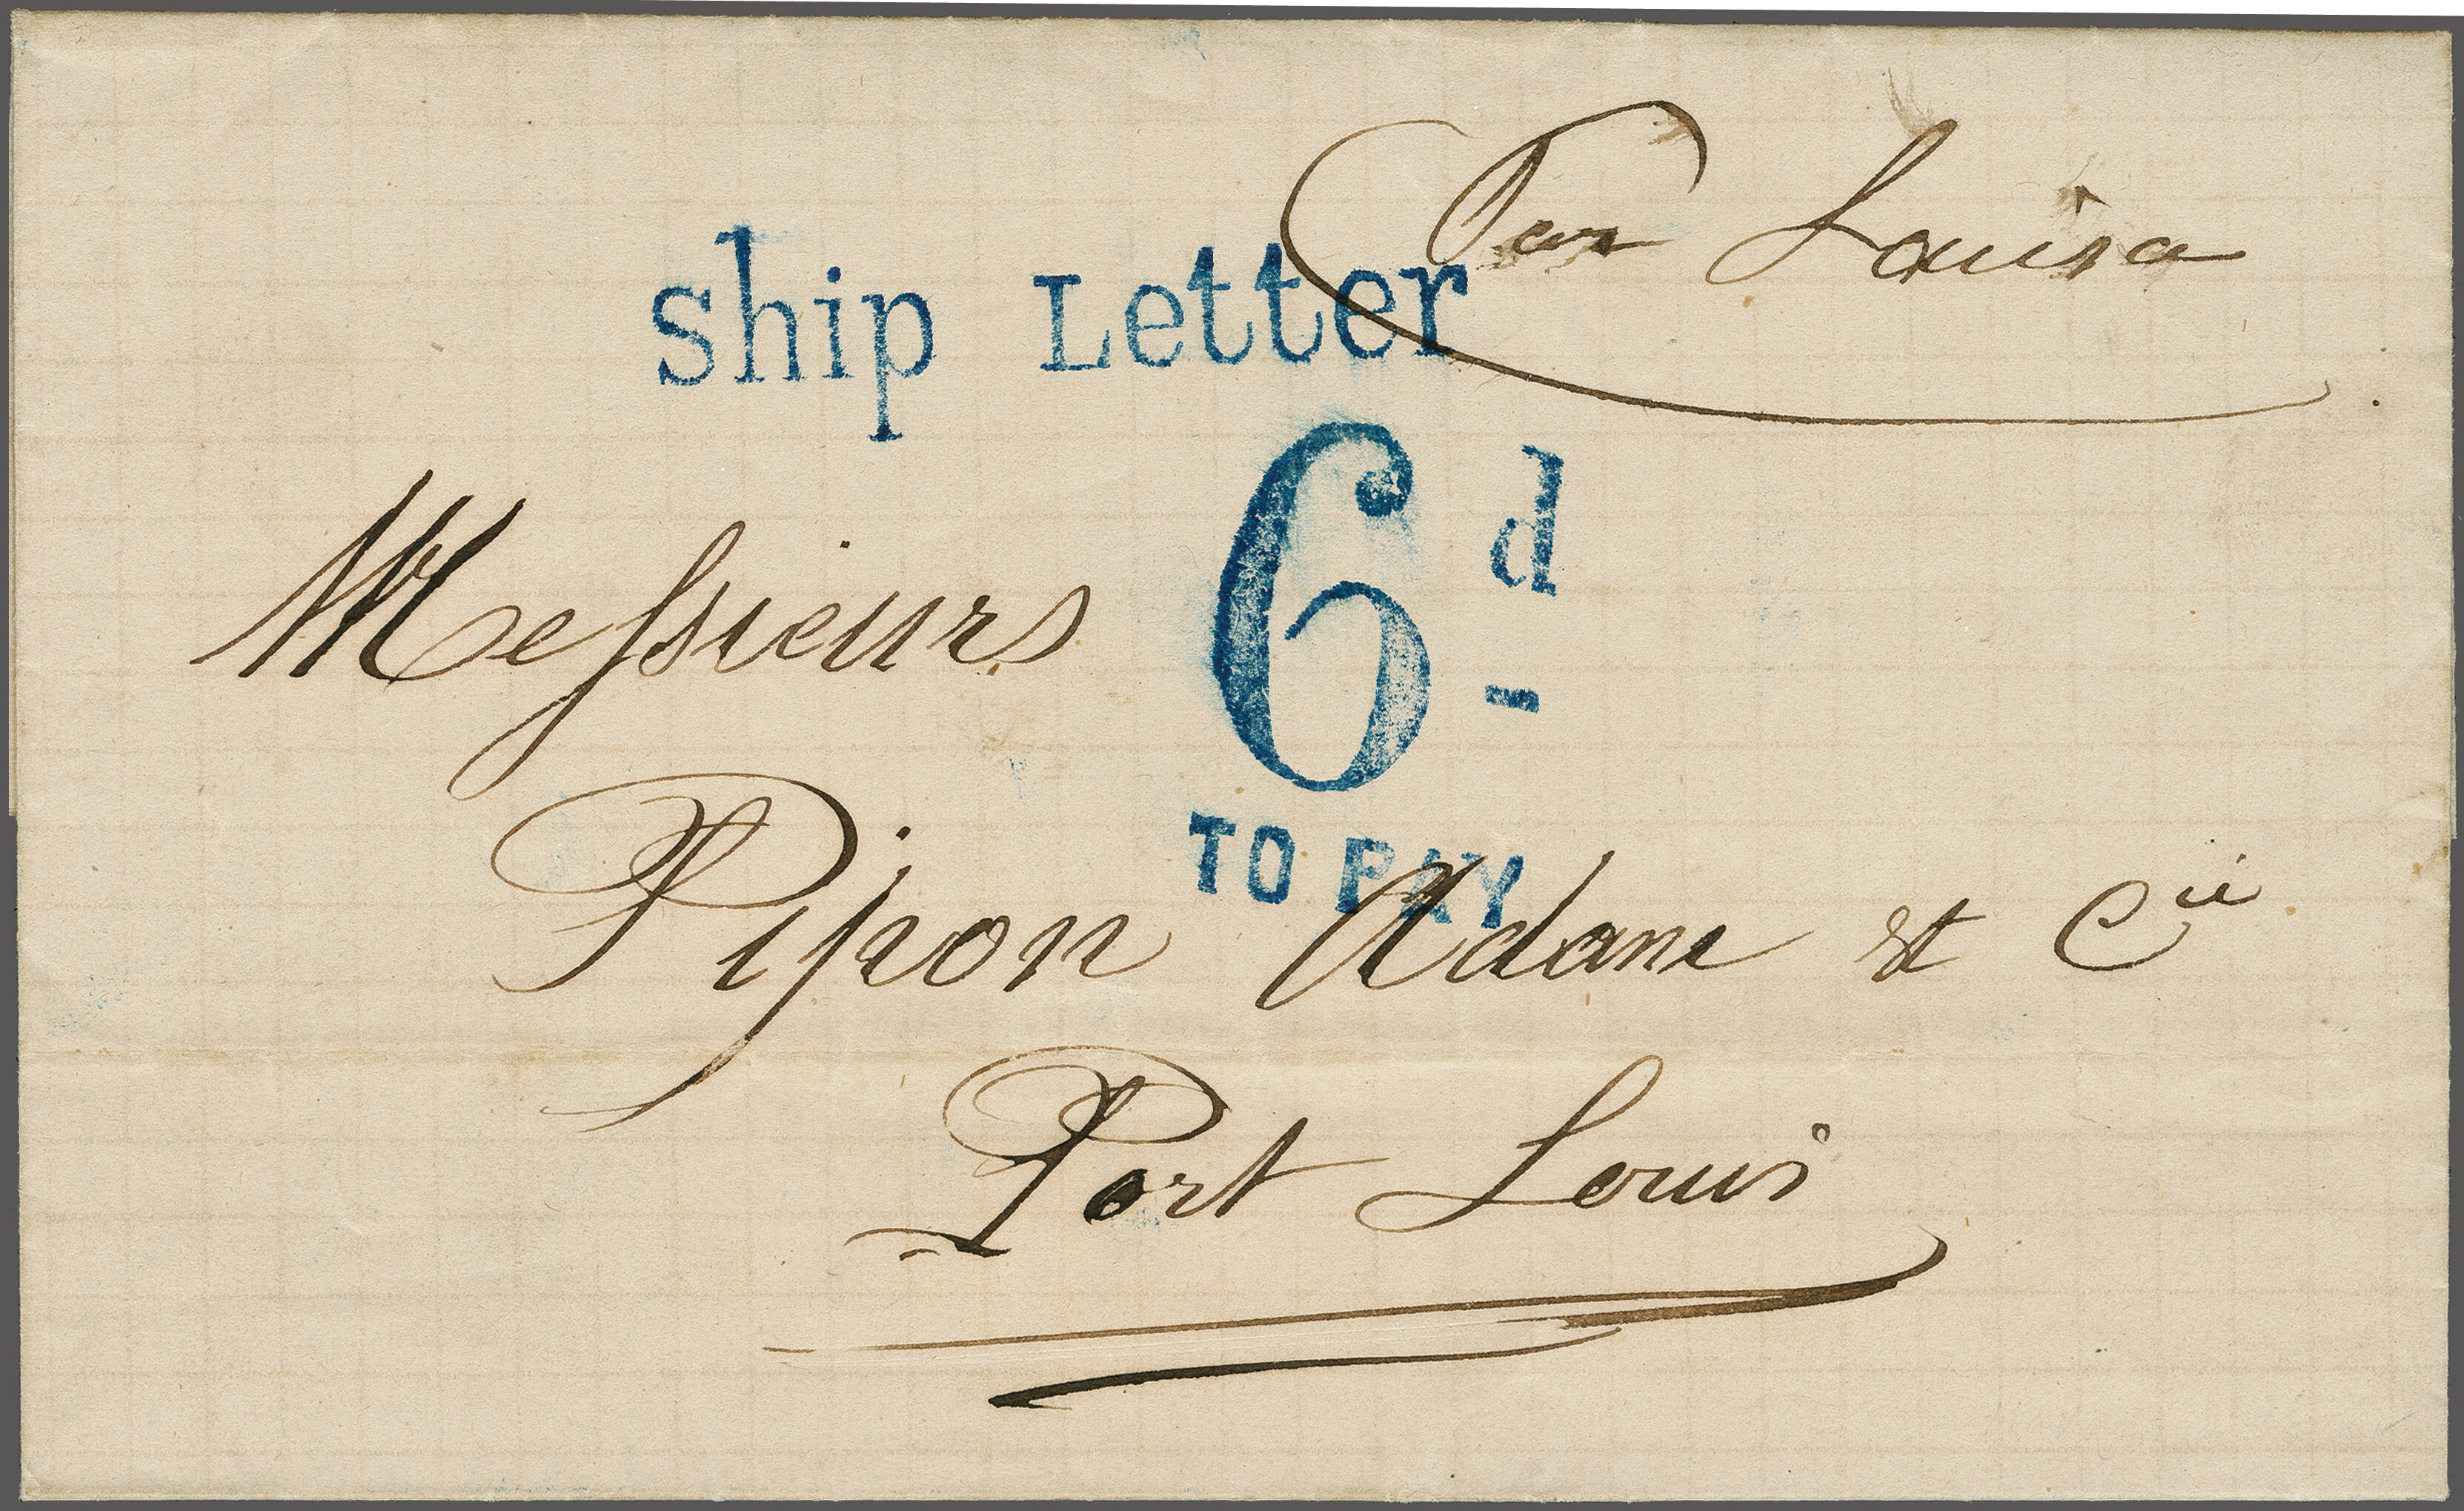 Par Louisa
Ship Letter
6d
Messieurs
TO PAY
Pipon Adam et Cie
Port Louis